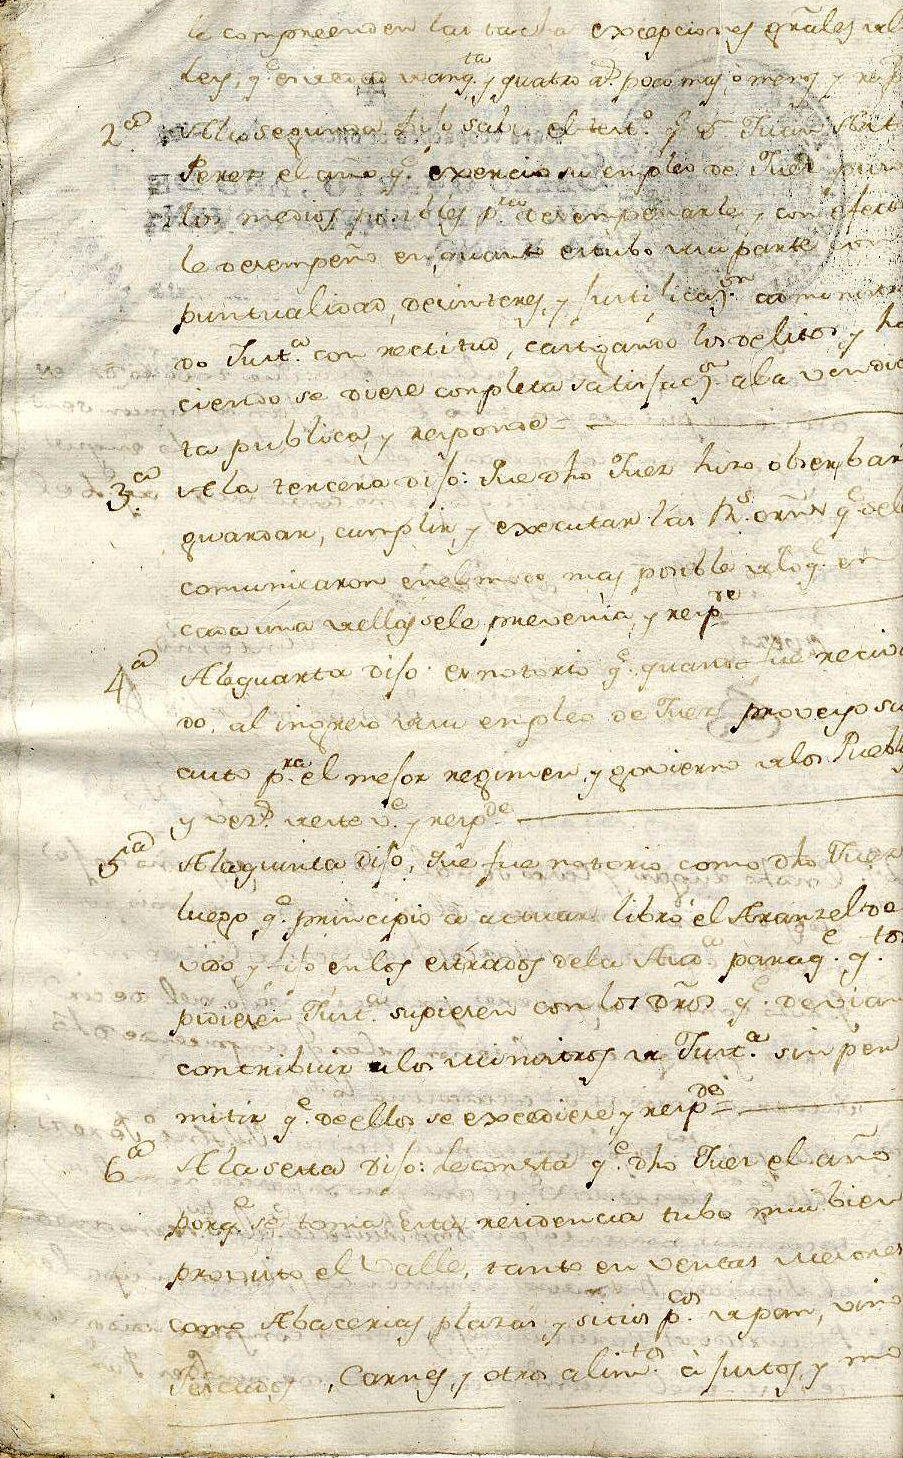 le compreenden las tacha excepciones grāles
Ley, q.e en redad y quatro a.s poco mas, ò menos y resp
2.a A la segunda dijo save el test.o q.e D. Juan
Perez el año q.e exercio su empleo de Juez puso
los medios posibles p.a desempeñarle y con efecto
le desempeñò en quanto estubo de su parte con
puntualidad, desinteres, y justificaz.on administran
do Just.a con rectitud, castigando los delitos, y ha
ciendo se diese completa satisfacz.on a la vendic
ta publica, y responde =
3.a A la tercera dijo: Que dho Juez hizo obserbar
guardar, cumplir, y executar las R.s orñs q.e se le
comunicaron en el modo mas posible de lo q.e en
cada una de ellas se le prevenia, y resp.de
4.a A la quarta dijo: es notorio q.e quando fue recivi
do, al ingreso de su empleo de Juez proveyo su
auto p.ra el mejor regimen, y govierno de los Pueblos
y vez.s de este v.e y resp.de
5.a A la quinta dijo, Que fue notorio como dho Juez
luego q.e principio a actuar libró el Aranzel de
vido y fijo en los estrados de la Aud.a para q.e q.tos
pidiesen Just.a supiesen con los dr̃os q.e devian
contribuir a los Ministros de Just.a sin per
mitir q.e de ellos se excediese, y resp.de
6.a A la sexta dijo: Le consta q.e dho Juez el año
porq.e se toma esta residencia tubo mui bien
provisto el Valle, tanto en ventas mesones
como Abacerias, plazas, y sitios p.cos de pan, vino
Pescados, Carnes, y otros alim.tos à justos, y mo